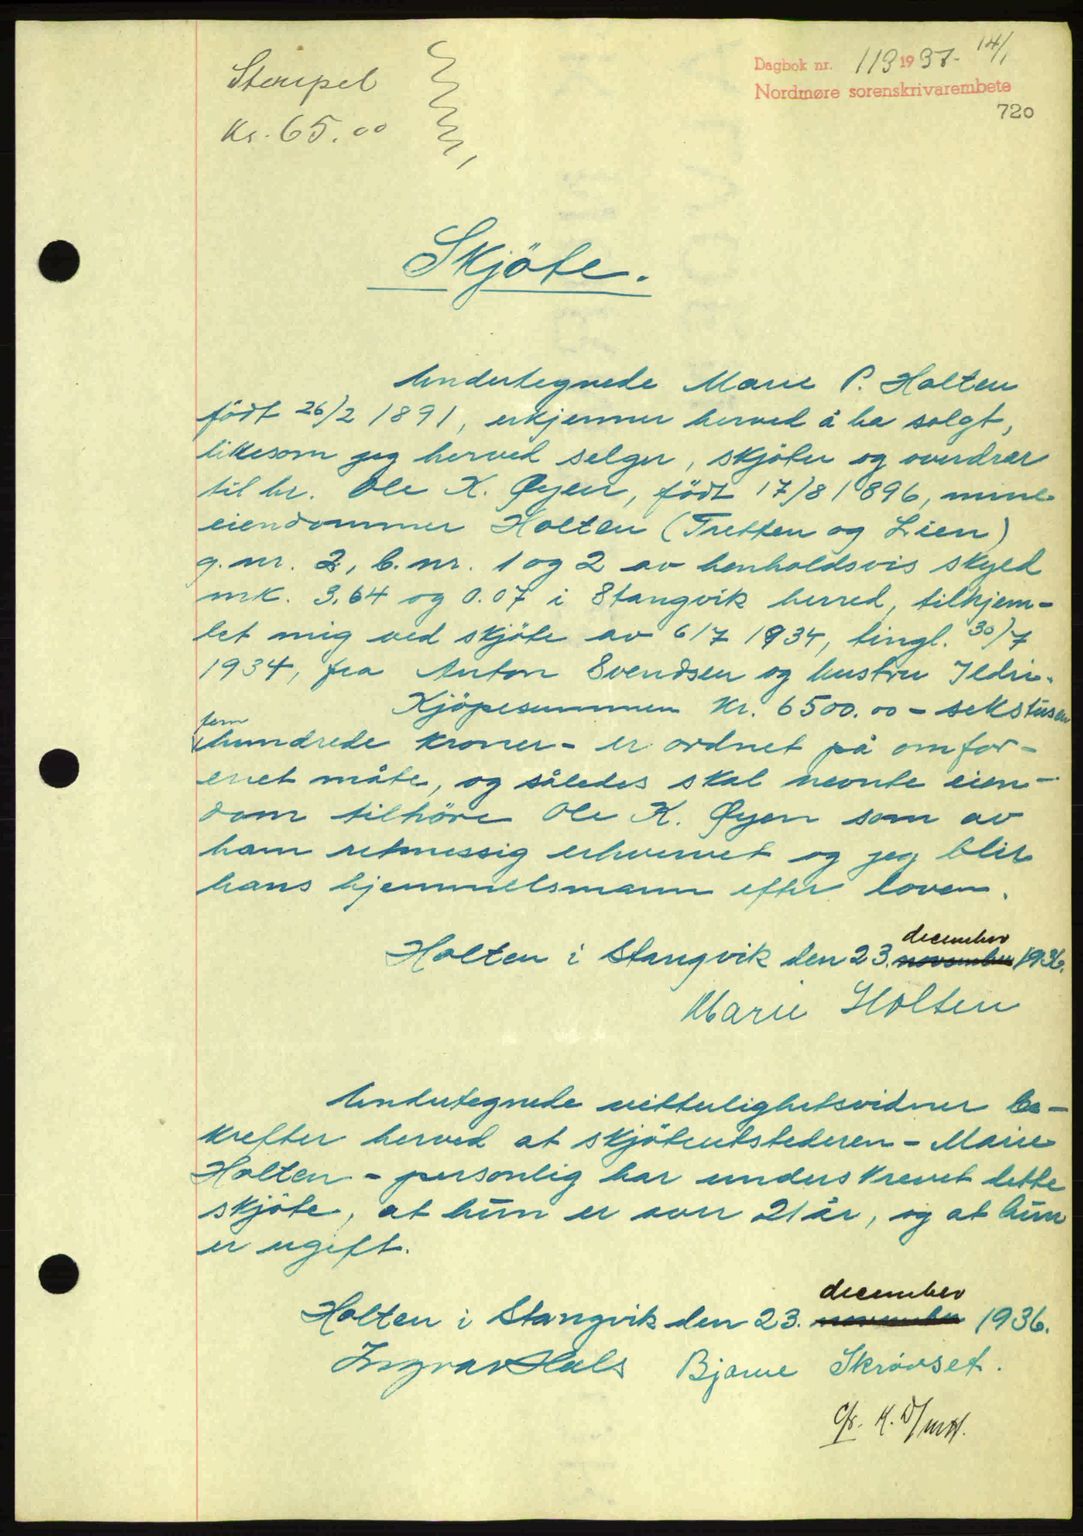 Stempel
Kr. 65.00
Dagbok nr. 113 1937- 14/1
Nordmøre sorenskrivarembete
720
Skjöte.
Undertegnede Marie P. Holten
født 26/2 1891, erkjenner herved å ha solgt,
likesom jeg herved selger, skjöter og overdrar
til hr. Ole K. Øyen, født 17/8 1896, mine
eiendommer Holten (Tretten og Lien)
g. nr. 2, b. nr. 1 og 2 av henholdsvis skyld
mrk. 3.64 og 0.07 i Stangvik herred, tilhjem-
let mig ved skjöte av 6/7 1934, tingl. 30/7
1934, fra Anton Svendsen og hustru Ildri.
Kjöpesummen kr. 6500.00 - sekstusen
fem
hundrede kroner - er ordnet på omfor-
enet måte, og således skal nevnte eien-
dom tilhöre Ole K. Øyen som av
ham retmessig erhvervet og jeg blir
hans hjemmelsmann efter loven.
december
Holten i Stangvik den 23. november 1936.
Marie Holten
Undertegnede vitterlighetsvidner be-
krefter herved at skjöteutstederen - Marie
Holten - personlig har underskrevet dette
skjöte, at hun er over 21 år, og at hun
er ugift.
december
Holten i Stangvik den 23. november 1936.
Ingvar Hals Bjarne Skrövset.